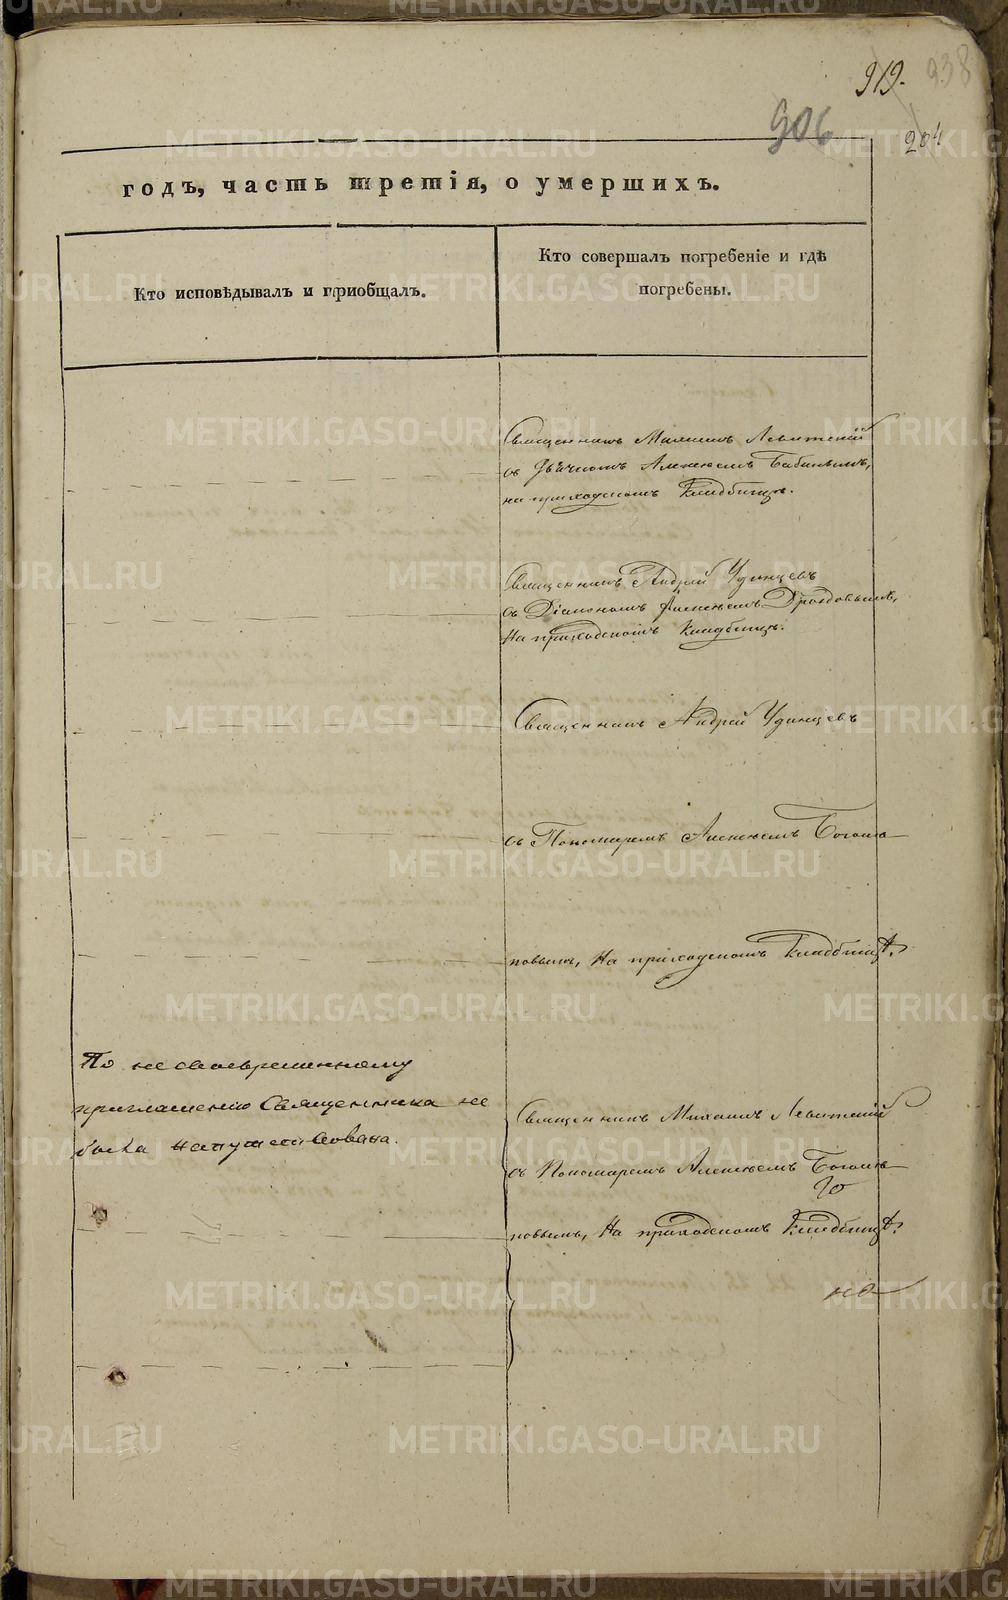 919.
938
906
204
годъ, часть третія, о умершихъ.
Кто исповѣдывалъ и пріобщалъ.
Кто совершалъ погребеніе и гдѣ
погребены.
Священникъ Левитскій
съ Алексѣемъ Бабинымъ,
на приходскомъ кладбищѣ.
Священникъ Андрей Удинцевъ
съ Діакономъ Алексѣемъ Дроздовымъ,
На приходскомъ кладбищѣ.
Священникъ Андрей Удинцевъ
съ Пономаремъ Алексѣемъ Богомо
повымъ, На приходскомъ кладбищѣ.
По не своевременному
приглашенію Священника не
была напутствована.
Священникъ Михаилъ Левитскій
съ Пономаремъ Алексѣемъ Богомо
повымъ, На приходскомъ кладбищѣ.
METRIKI.GASO-URAL.RU